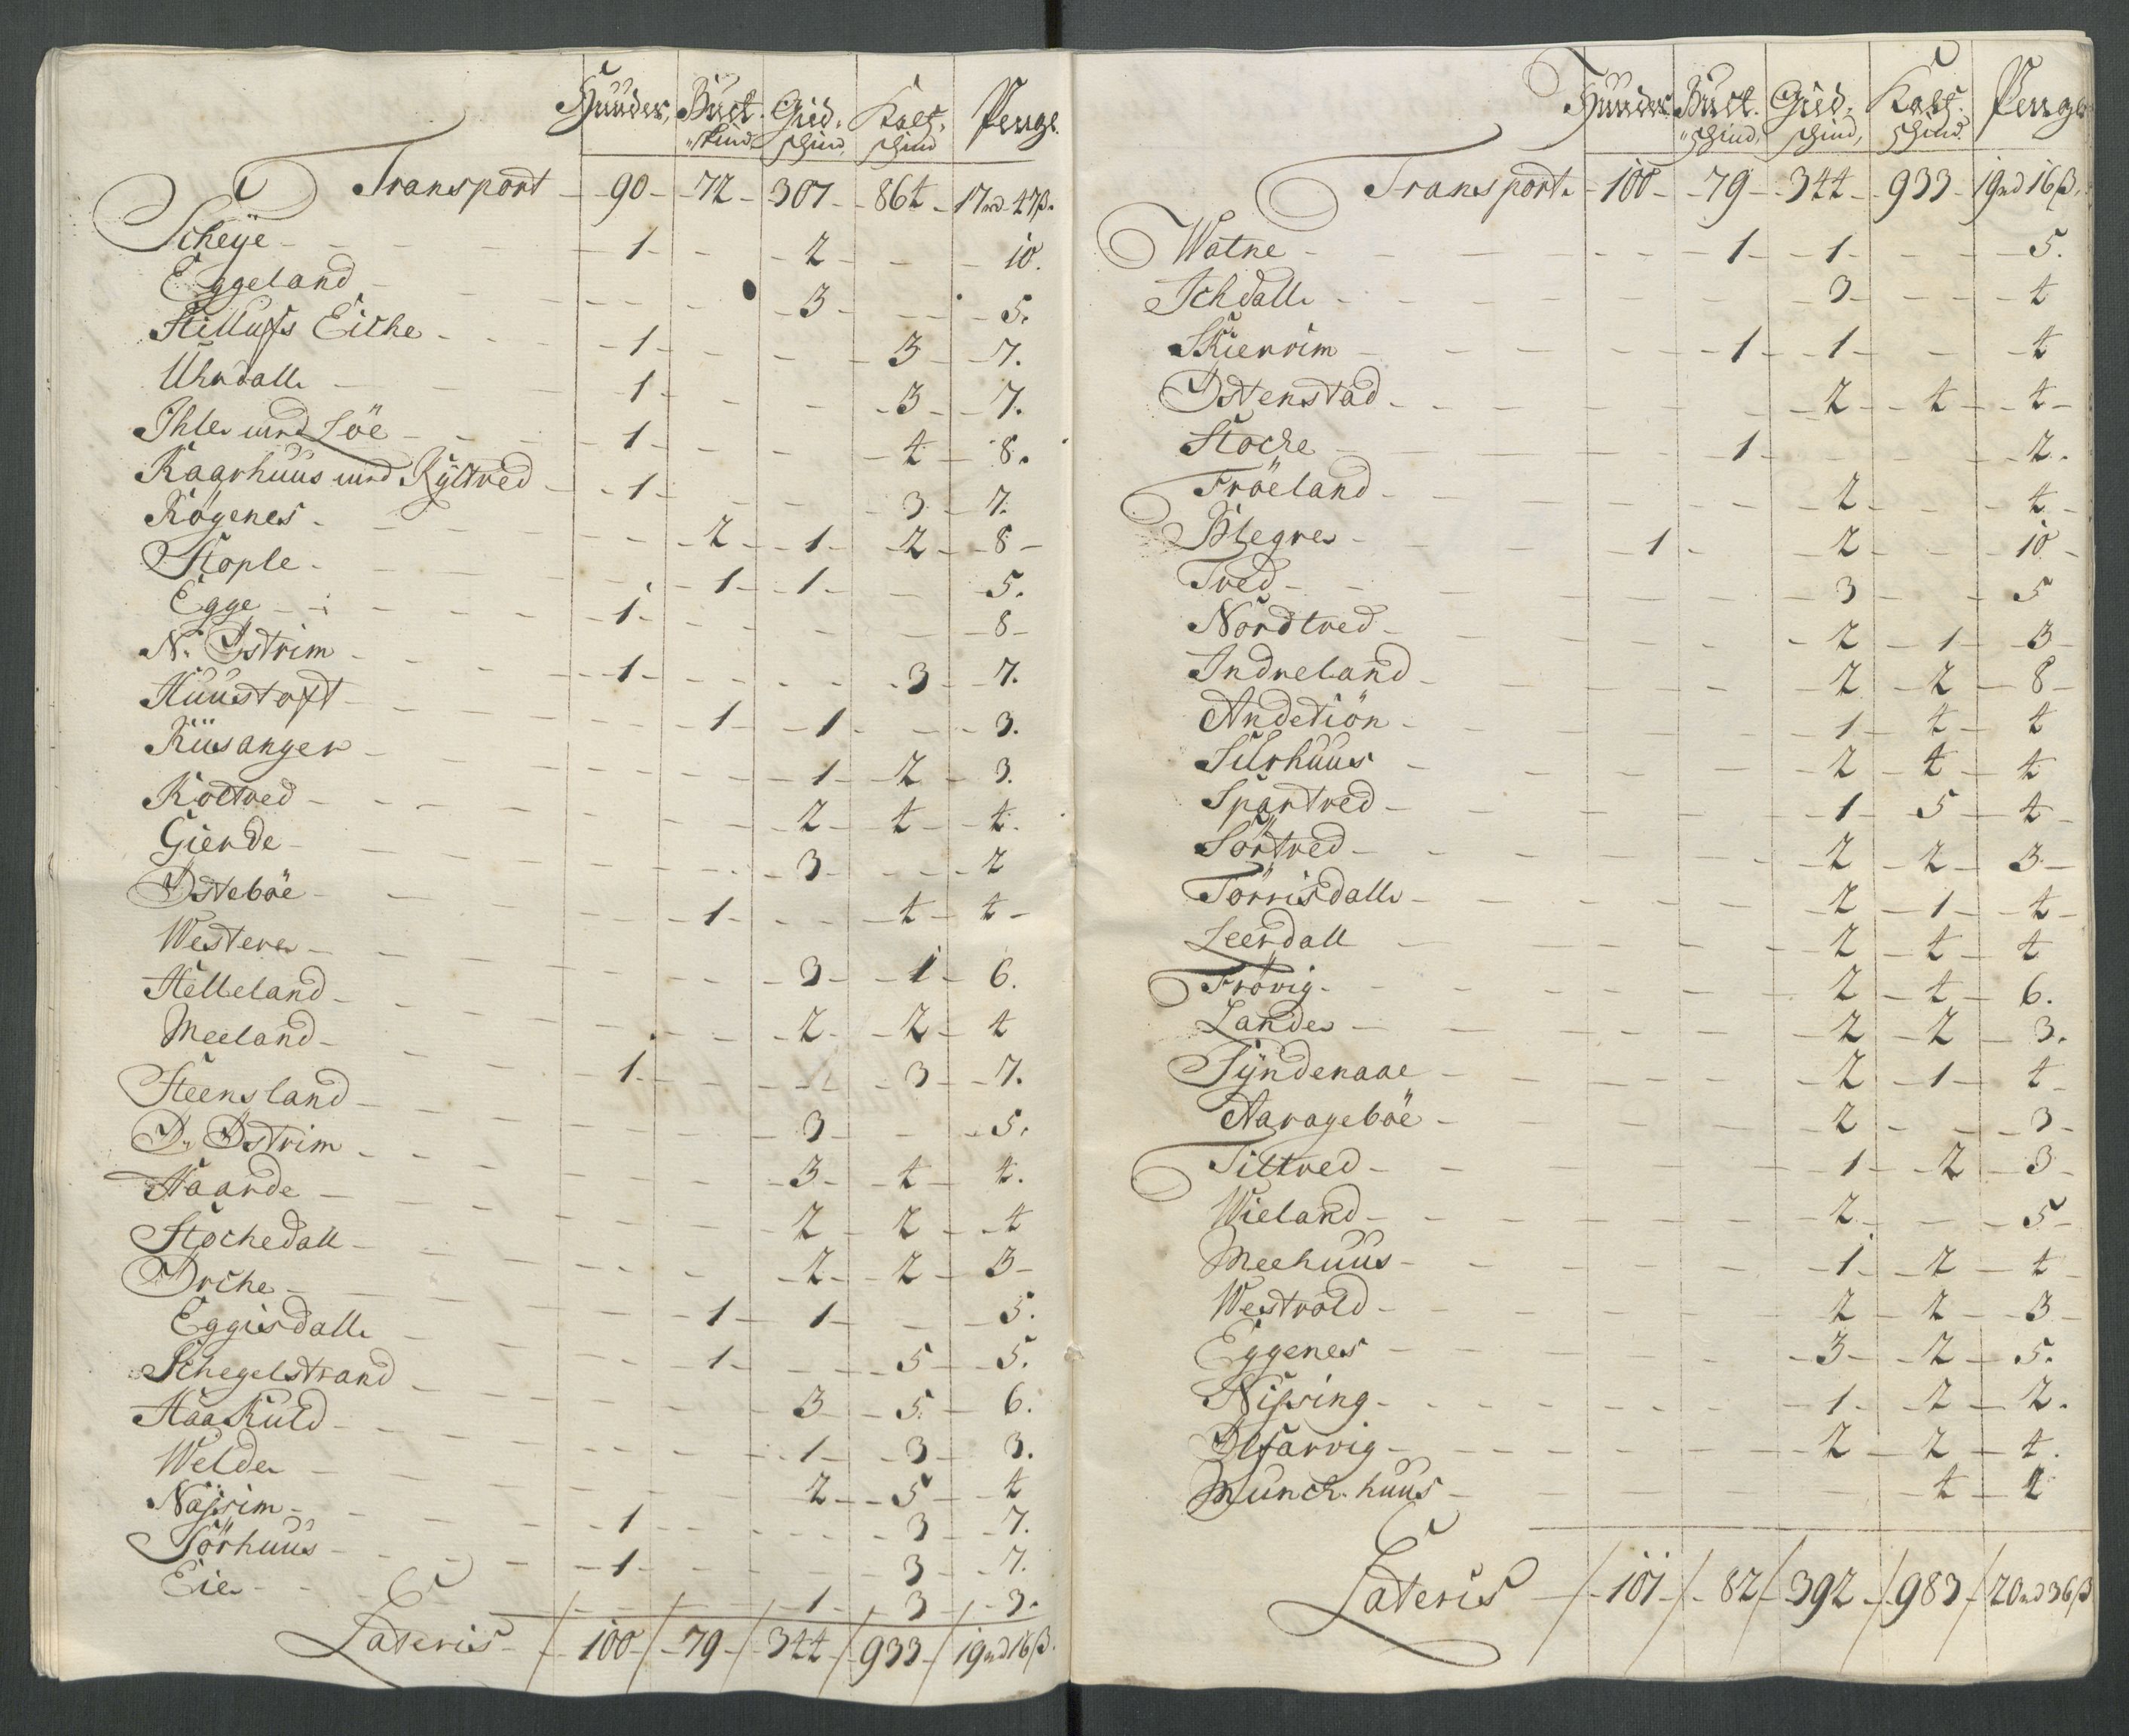 Huuder, Buct. Gied. Kalf. Penge.
Skind schind, schind
Transport 90 72 307 864 17 rd 47 ß.
Scheye 1 2 10.
Eggeland 3 5.
Stilluss Eiche 1 3 7.
Uhrdall 1 3 7.
Ihle und Löe 1 4 8.
Kaarhuus und Kyltved 1 3 7.
Röyenes 2 1 2 8
Stople 1 1 5.
Egge 1 8
N. Østrim 1 3 7.
Huustoft 1 1 3.
Kusanger 1 2 3.
Roltved 2 4 4.
Gierde 3 2
Østebøe 1 4 4
Westere 3 1 6.
Helleland 2 2 4
Meeland 1 3 7.
Steensland 3 5.
D. Østrim 3 4 4.
Haarde 2 2 4
Stochedall 2 2 3
Orche 1 1 5.
Eggisdall 1 5 5.
Schegelstrand 3 5 6.
Haakuld 1 3 3.
Welde 2 5 4
Nassim 1 3 7.
Törhuus 1 3 7.
Eie 1 3 3.
Lateris 100 79 344 933 19 rd 16 ß.
Huuder. Buct. Gied. Kalf. Penge
schind, schind, schind.
Transport 100 79 344 933 19 rd 16 ß.
Watne 1 1 5.
Ichdall 3 4
Skierrim 1 1 4
Østenstad 2 4 4
Stoche 1 2.
Fröeland 2 4
Blegre 1 2 10
Tved 3 5
Nordtved 2 1 3
Indreland 2 2 8
Andetiön 1 4 4
Silrhuus 2 4 4
Spartved 1 5 4
Sörtved 2 2 3
Torrisdall 2 1 4
Leerdall 2 4 4
Frövig 2 4 6.
Lande 2 2 3.
Tyndenaae 2 1 4
Aarageböe 2 3
Tiltved 1 2 3
Wieland 2 5
Meehuus 1 2 4
Westvold 2 2 3
Eggenes 3 2 5.
Nissing 1 2 2.
Olfarvig 2 2 4.
Munchhuus 4 4
Lateris 101 82 392 983 20 rd 36 ß